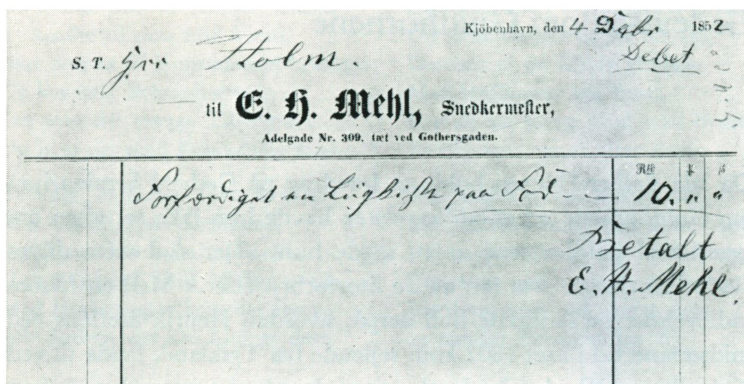 Kjöbenhavn, den 4 Dcbr 1852
Debet
S. T. Hrr Holm.
til E. H. Mehl, Snedkermester,
Adelgade Nr. 309, tæt ved Gothersgaden.
Rd ꝟ ß
Forfærdiget en Liigkiste paa Fod 10. " "
Betalt
E. H. Mehl.